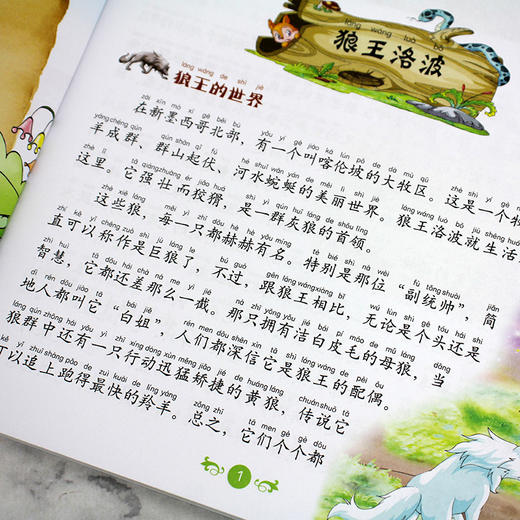 láng wáng luò bō
狼王洛波
láng wáng de shì jiè
狼王的世界
在新墨西哥北部，有一个叫喀伦坡的大牧区。这是一个牧
羊成群、群山起伏、河水蜿蜒的美丽世界。狼王洛波就生活
这里。它强壮而狡猾，是一群灰狼的首领。
这些狼，每一只都赫赫有名。特别是那位“副统帅”，简
直可以称作是巨狼了，不过，跟狼王相比，无论是个头还是
智慧，它都还差那么一截。那只拥有洁白皮毛的母狼，当
地人都叫它“白姐”，人们都深信它是狼王的配偶。
狼群中还有一只行动迅猛矫捷的黄狼，传说它
可以追上跑得最快的羚羊。总之，它们个个都
1